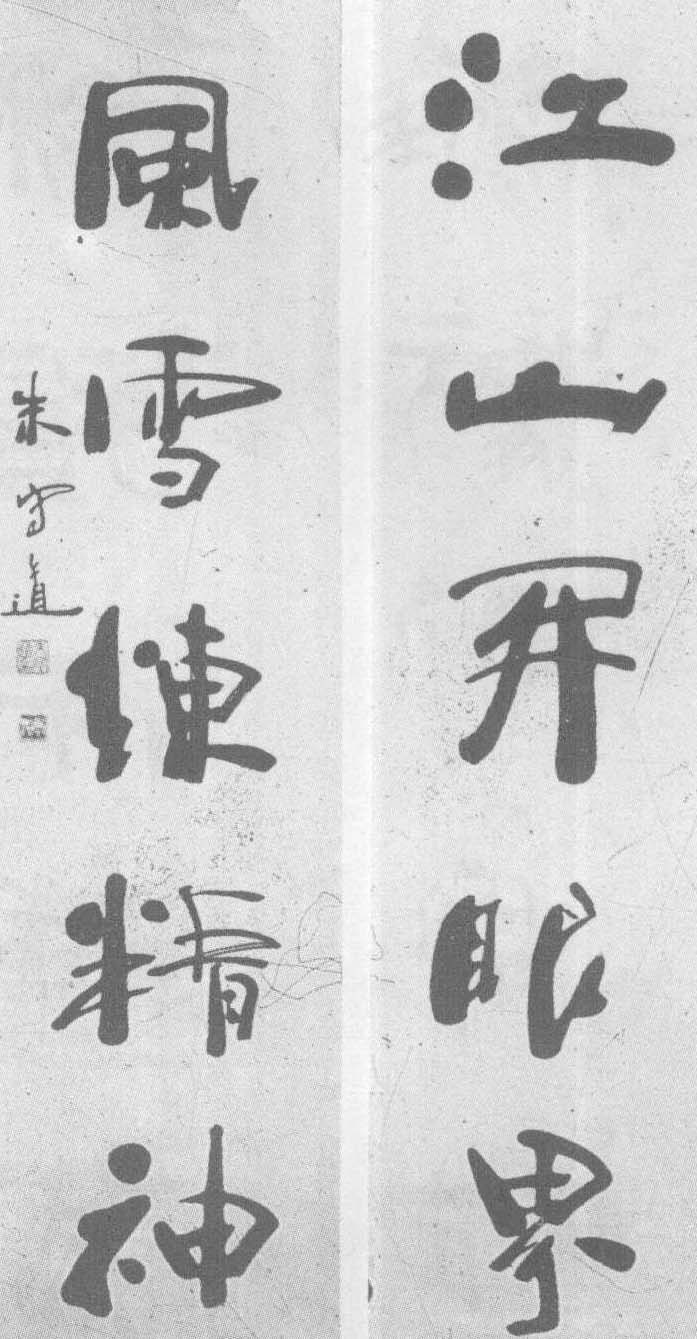 江山開眼界
風雪煉精神
朱守道